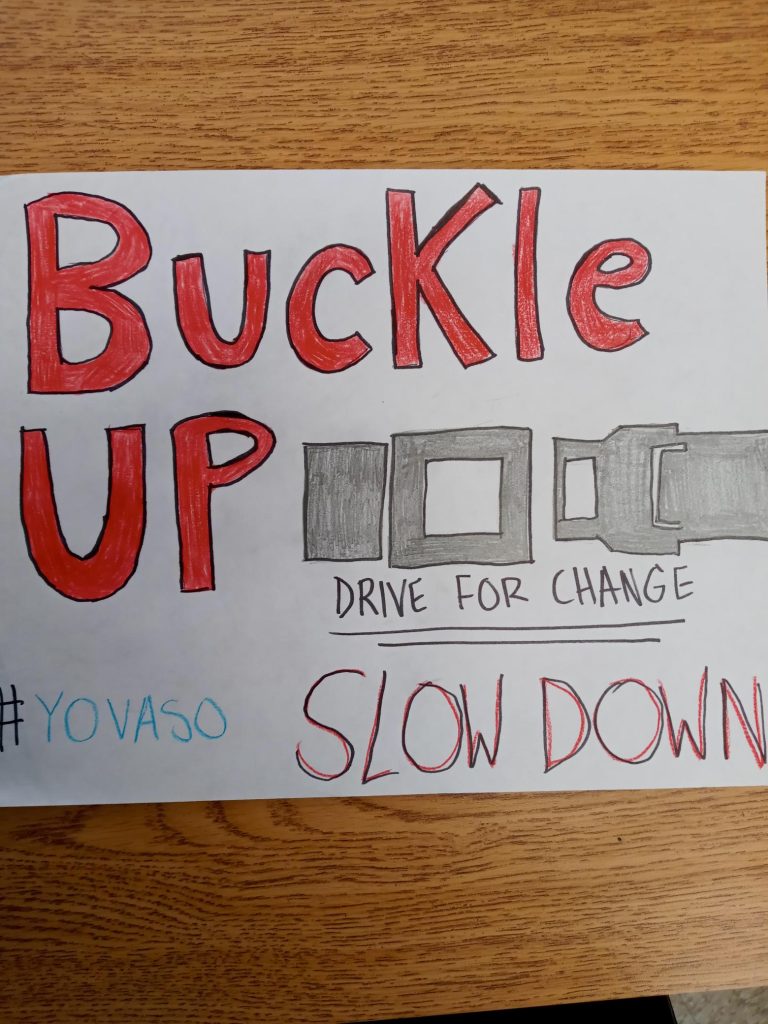 BucKle
UP
DRIVE FOR CHANGE
#YOVASO
SLOW DOWN